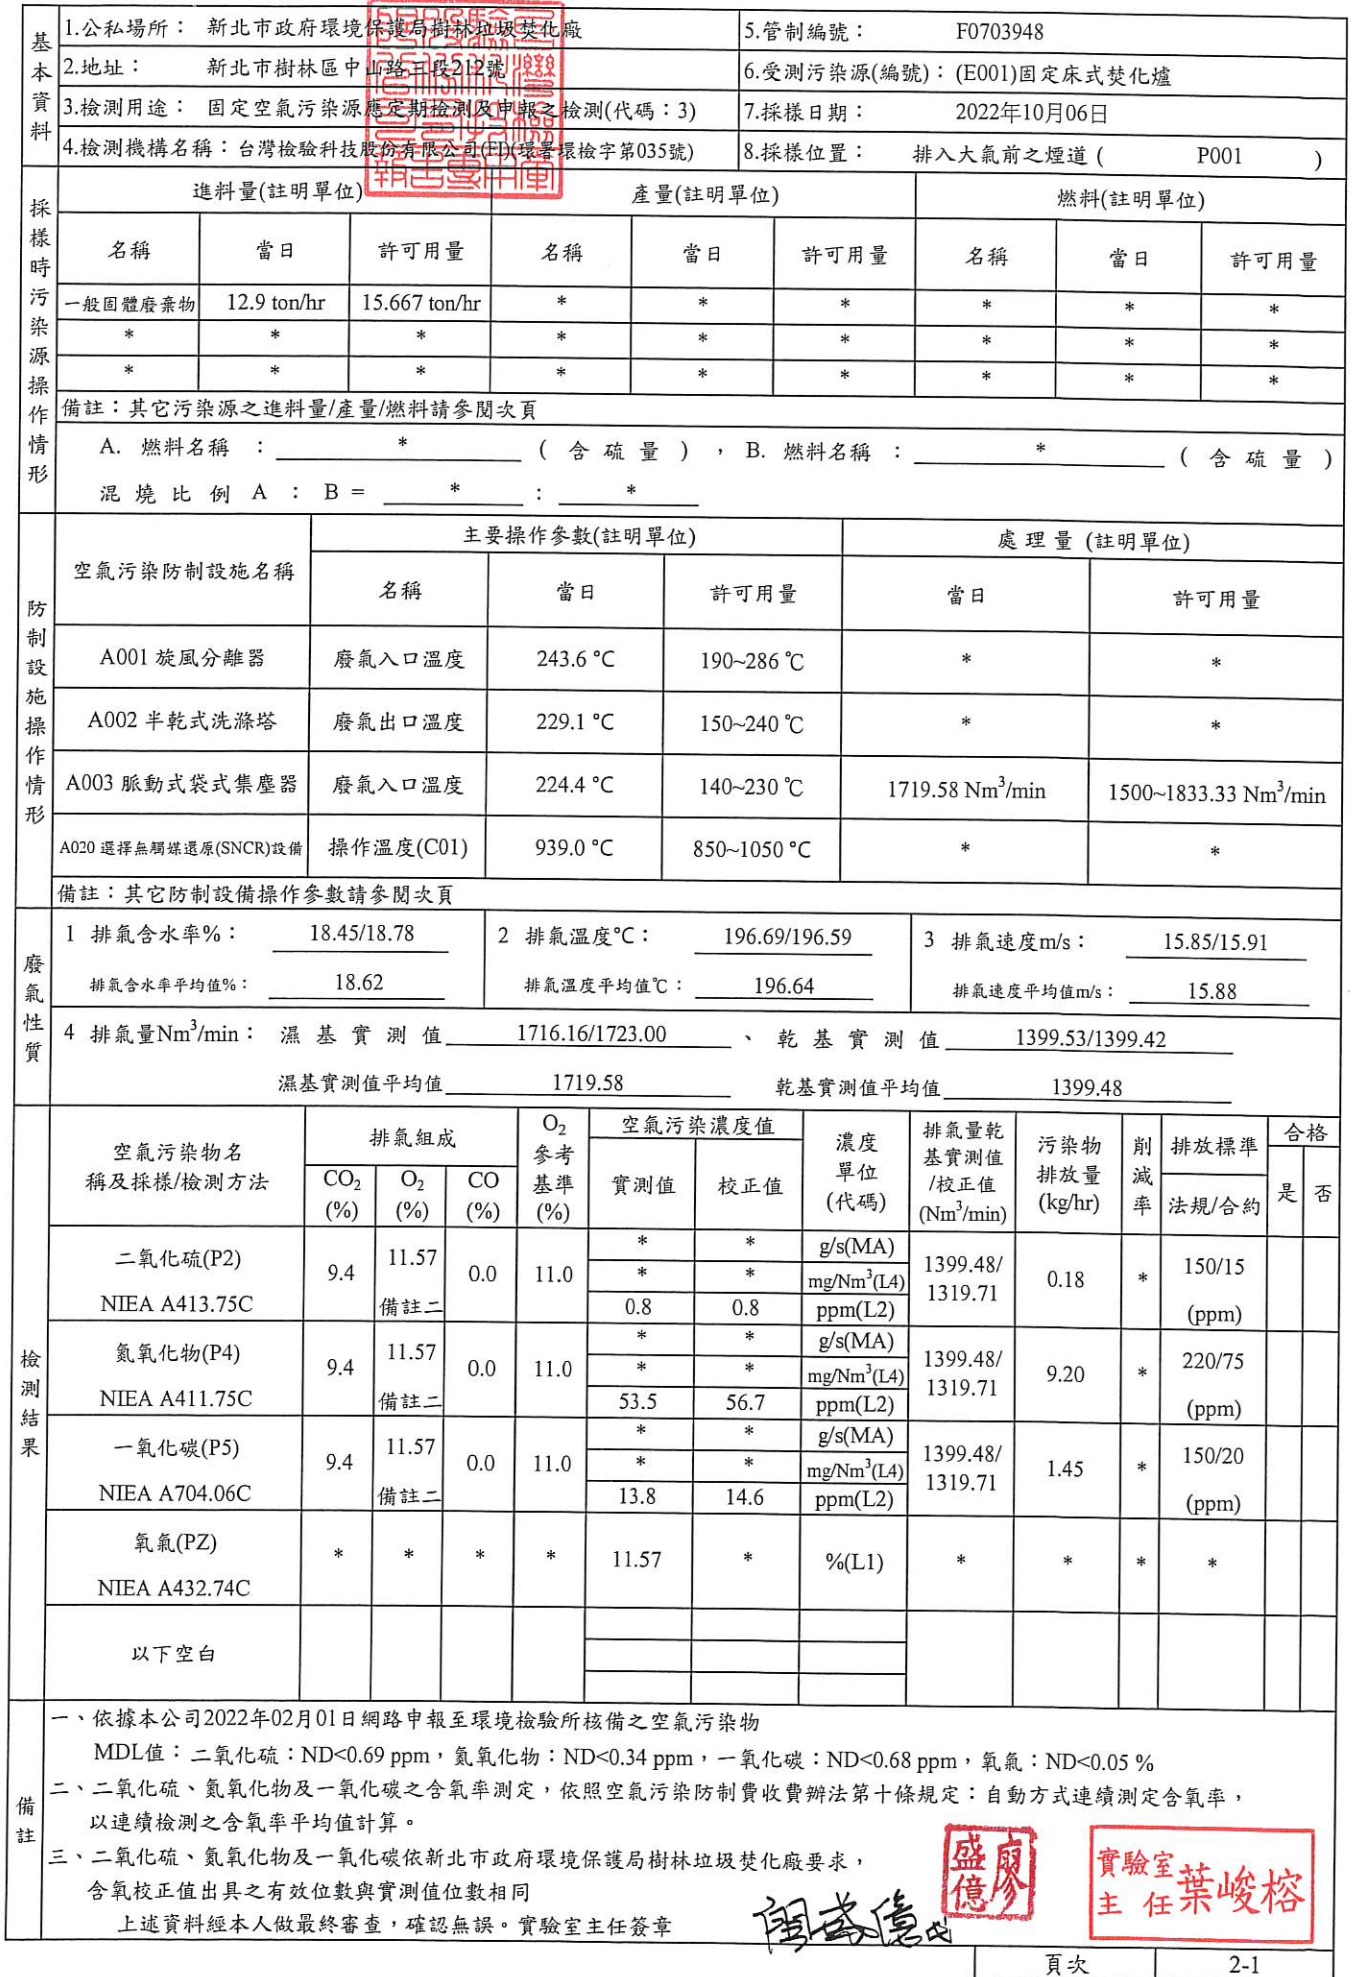 基本資料
1.公私場所： 新北市政府環境保護局樹林垃圾焚化廠 5.管制編號： F0703948
2.地址： 新北市樹林區中山路三段212號 6.受測污染源(編號)：(E001)固定床式焚化爐
3.檢測用途： 固定空氣污染源應定期檢測及申報之檢測(代碼：3) 7.採樣日期： 2022年10月06日
4.檢測機構名稱：台灣檢驗科技股份有限公司(FI)(環署環檢字第035號) 8.採樣位置： 排入大氣前之煙道 ( P001 )
採樣時污染源操作情形
進料量(註明單位) 產量(註明單位) 燃料(註明單位)
名稱 當日 許可用量 名稱 當日 許可用量 名稱 當日 許可用量
一般固體廢棄物 12.9 ton/hr 15.667 ton/hr * * * * * *
* * * * * * * * *
* * * * * * * * *
備註：其它污染源之進料量/產量/燃料請參閱次頁
A. 燃料名稱 ： * ( 含硫量 ) ，B. 燃料名稱 ： * ( 含硫量 )
混燒比例 A ： B = * ： *
防制設施操作情形
空氣污染防制設施名稱 主要操作參數(註明單位) 處理量 (註明單位)
名稱 當日 許可用量 當日 許可用量
A001 旋風分離器 廢氣入口溫度 243.6 °C 190~286 ℃ * *
A002 半乾式洗滌塔 廢氣出口溫度 229.1 °C 150~240 ℃ * *
A003 脈動式袋式集塵器 廢氣入口溫度 224.4 °C 140~230 ℃ 1719.58 Nm³/min 1500~1833.33 Nm³/min
A020 選擇無觸媒還原(SNCR)設備 操作溫度(C01) 939.0 °C 850~1050 °C * *
備註：其它防制設備操作參數請參閱次頁
廢氣性質
1 排氣含水率%： 18.45/18.78 2 排氣溫度°C： 196.69/196.59 3 排氣速度m/s： 15.85/15.91
排氣含水率平均值%： 18.62 排氣溫度平均值℃： 196.64 排氣速度平均值m/s： 15.88
4 排氣量Nm³/min： 濕基實測值 1716.16/1723.00 、 乾基實測值 1399.53/1399.42
濕基實測值平均值 1719.58 乾基實測值平均值 1399.48
檢測結果
空氣污染物名稱及採樣/檢測方法 排氣組成 O₂參考基準(%) 空氣污染濃度值 濃度單位(代碼) 排氣量乾基實測值/校正值(Nm³/min) 污染物排放量(kg/hr) 削減率 排放標準 合格
CO₂(%) O₂(%) CO(%) 實測值 校正值 法規/合約 是 否
二氧化硫(P2) NIEA A413.75C 9.4 11.57 備註二 0.0 11.0 * * g/s(MA) 1399.48/1319.71 0.18 * 150/15 (ppm)
* * mg/Nm³(L4)
0.8 0.8 ppm(L2)
氮氧化物(P4) NIEA A411.75C 9.4 11.57 備註二 0.0 11.0 * * g/s(MA) 1399.48/1319.71 9.20 * 220/75 (ppm)
* * mg/Nm³(L4)
53.5 56.7 ppm(L2)
一氧化碳(P5) NIEA A704.06C 9.4 11.57 備註二 0.0 11.0 * * g/s(MA) 1399.48/1319.71 1.45 * 150/20 (ppm)
* * mg/Nm³(L4)
13.8 14.6 ppm(L2)
氧氣(PZ) NIEA A432.74C * * * * 11.57 * %(L1) * * * *
以下空白
備註
一、依據本公司2022年02月01日網路申報至環境檢驗所核備之空氣污染物
MDL值：二氧化硫：ND<0.69 ppm，氮氧化物：ND<0.34 ppm，一氧化碳：ND<0.68 ppm，氧氣：ND<0.05 %
二、二氧化硫、氮氧化物及一氧化碳之含氧率測定，依照空氣污染防制費收費辦法第十條規定：自動方式連續測定含氧率，
以連續檢測之含氧率平均值計算。
三、二氧化硫、氮氧化物及一氧化碳依新北市政府環境保護局樹林垃圾焚化廠要求，
含氧校正值出具之有效位數與實測值位數相同
上述資料經本人做最終審查，確認無誤。實驗室主任簽章
廖盛億
實驗室主任 葉峻榕
頁次 2-1